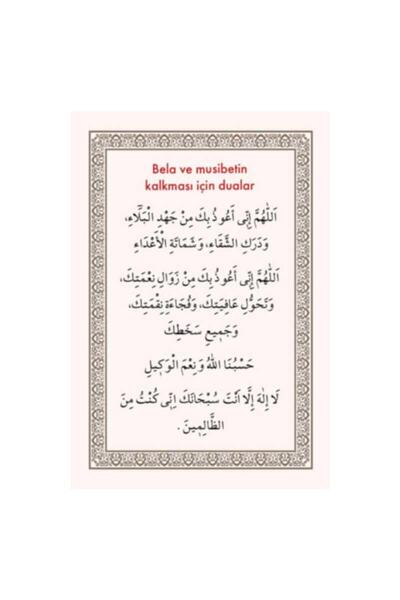 Bela ve musibetin
kalkması için dualar
اَللّٰهُمَّ إِنِّى أَعُوذُ بِكَ مِنْ جَهْدِ الْبَلَٓاءِ،
وَدَرَكِ الشَّقَاءِ، وَشَمَاتَةِ الْأَعْدَاءِ
اَللّٰهُمَّ إِنِّى أَعُوذُ بِكَ مِنْ زَوَالِ نِعْمَتِكَ،
وَتَحَوُّلِ عَافِيَتِكَ، وَفُجَاءَةِ نِقْمَتِكَ،
وَجَمِيعِ سَخَطِكَ
حَسْبُنَا اللّٰهُ وَنِعْمَ الْوَكِيلِ
لَا إِلٰهَ إِلَّا أَنْتَ سُبْحَانَكَ اِنِّى كُنْتُ مِنَ
الظَّالِمِينَ .